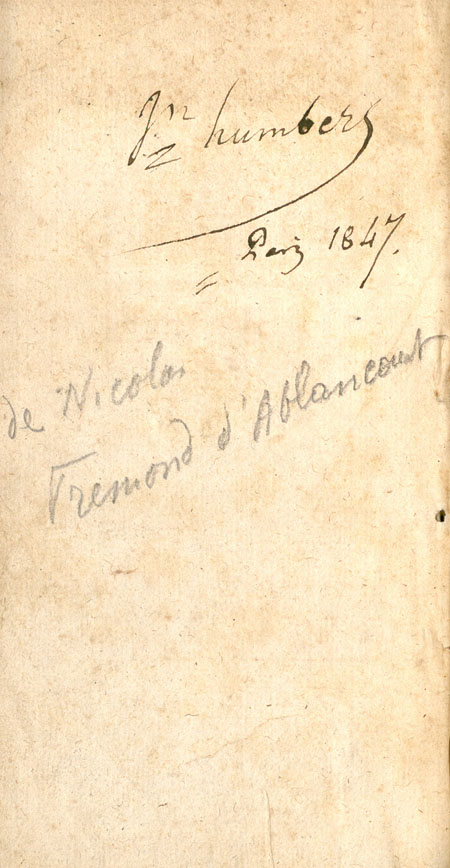 Jn humbert
Paris 1847.
de Nicolas
Fremond d'Ablancourt